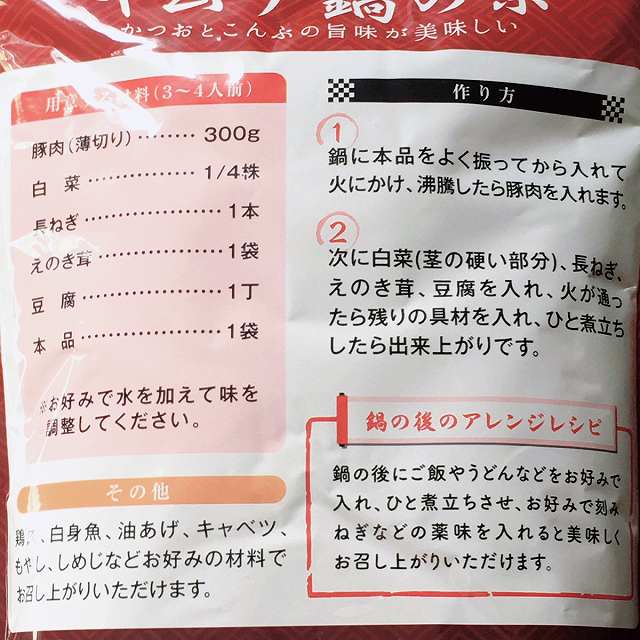 キムチ鍋の素
かつおとこんぶの旨味が美味しい
用意する材料(3〜4人前)
豚肉(薄切り)‥‥‥‥ 300g
白菜 ‥‥‥‥‥‥ 1/4株
長ねぎ ‥‥‥‥‥‥‥ 1本
えのき茸 ‥‥‥‥‥‥ 1袋
豆腐 ‥‥‥‥‥‥‥ 1丁
本品 ‥‥‥‥‥‥‥ 1袋
※お好みで水を加えて味を
調整してください。
その他
鶏 、白身魚、油あげ、キャベツ、
もやし、しめじなどお好みの材料で
お召し上がりいただけます。
作り方
1
鍋に本品をよく振ってから入れて
火にかけ、沸騰したら豚肉を入れます。
2
次に白菜(茎の硬い部分)、長ねぎ、
えのき茸、豆腐を入れ、火が通っ
たら残りの具材を入れ、ひと煮立ち
したら出来上がりです。
鍋の後のアレンジレシピ
鍋の後にご飯やうどんなどをお好みで
入れ、ひと煮立ちさせ、お好みで刻み
ねぎなどの薬味を入れると美味しく
お召し上がりいただけます。